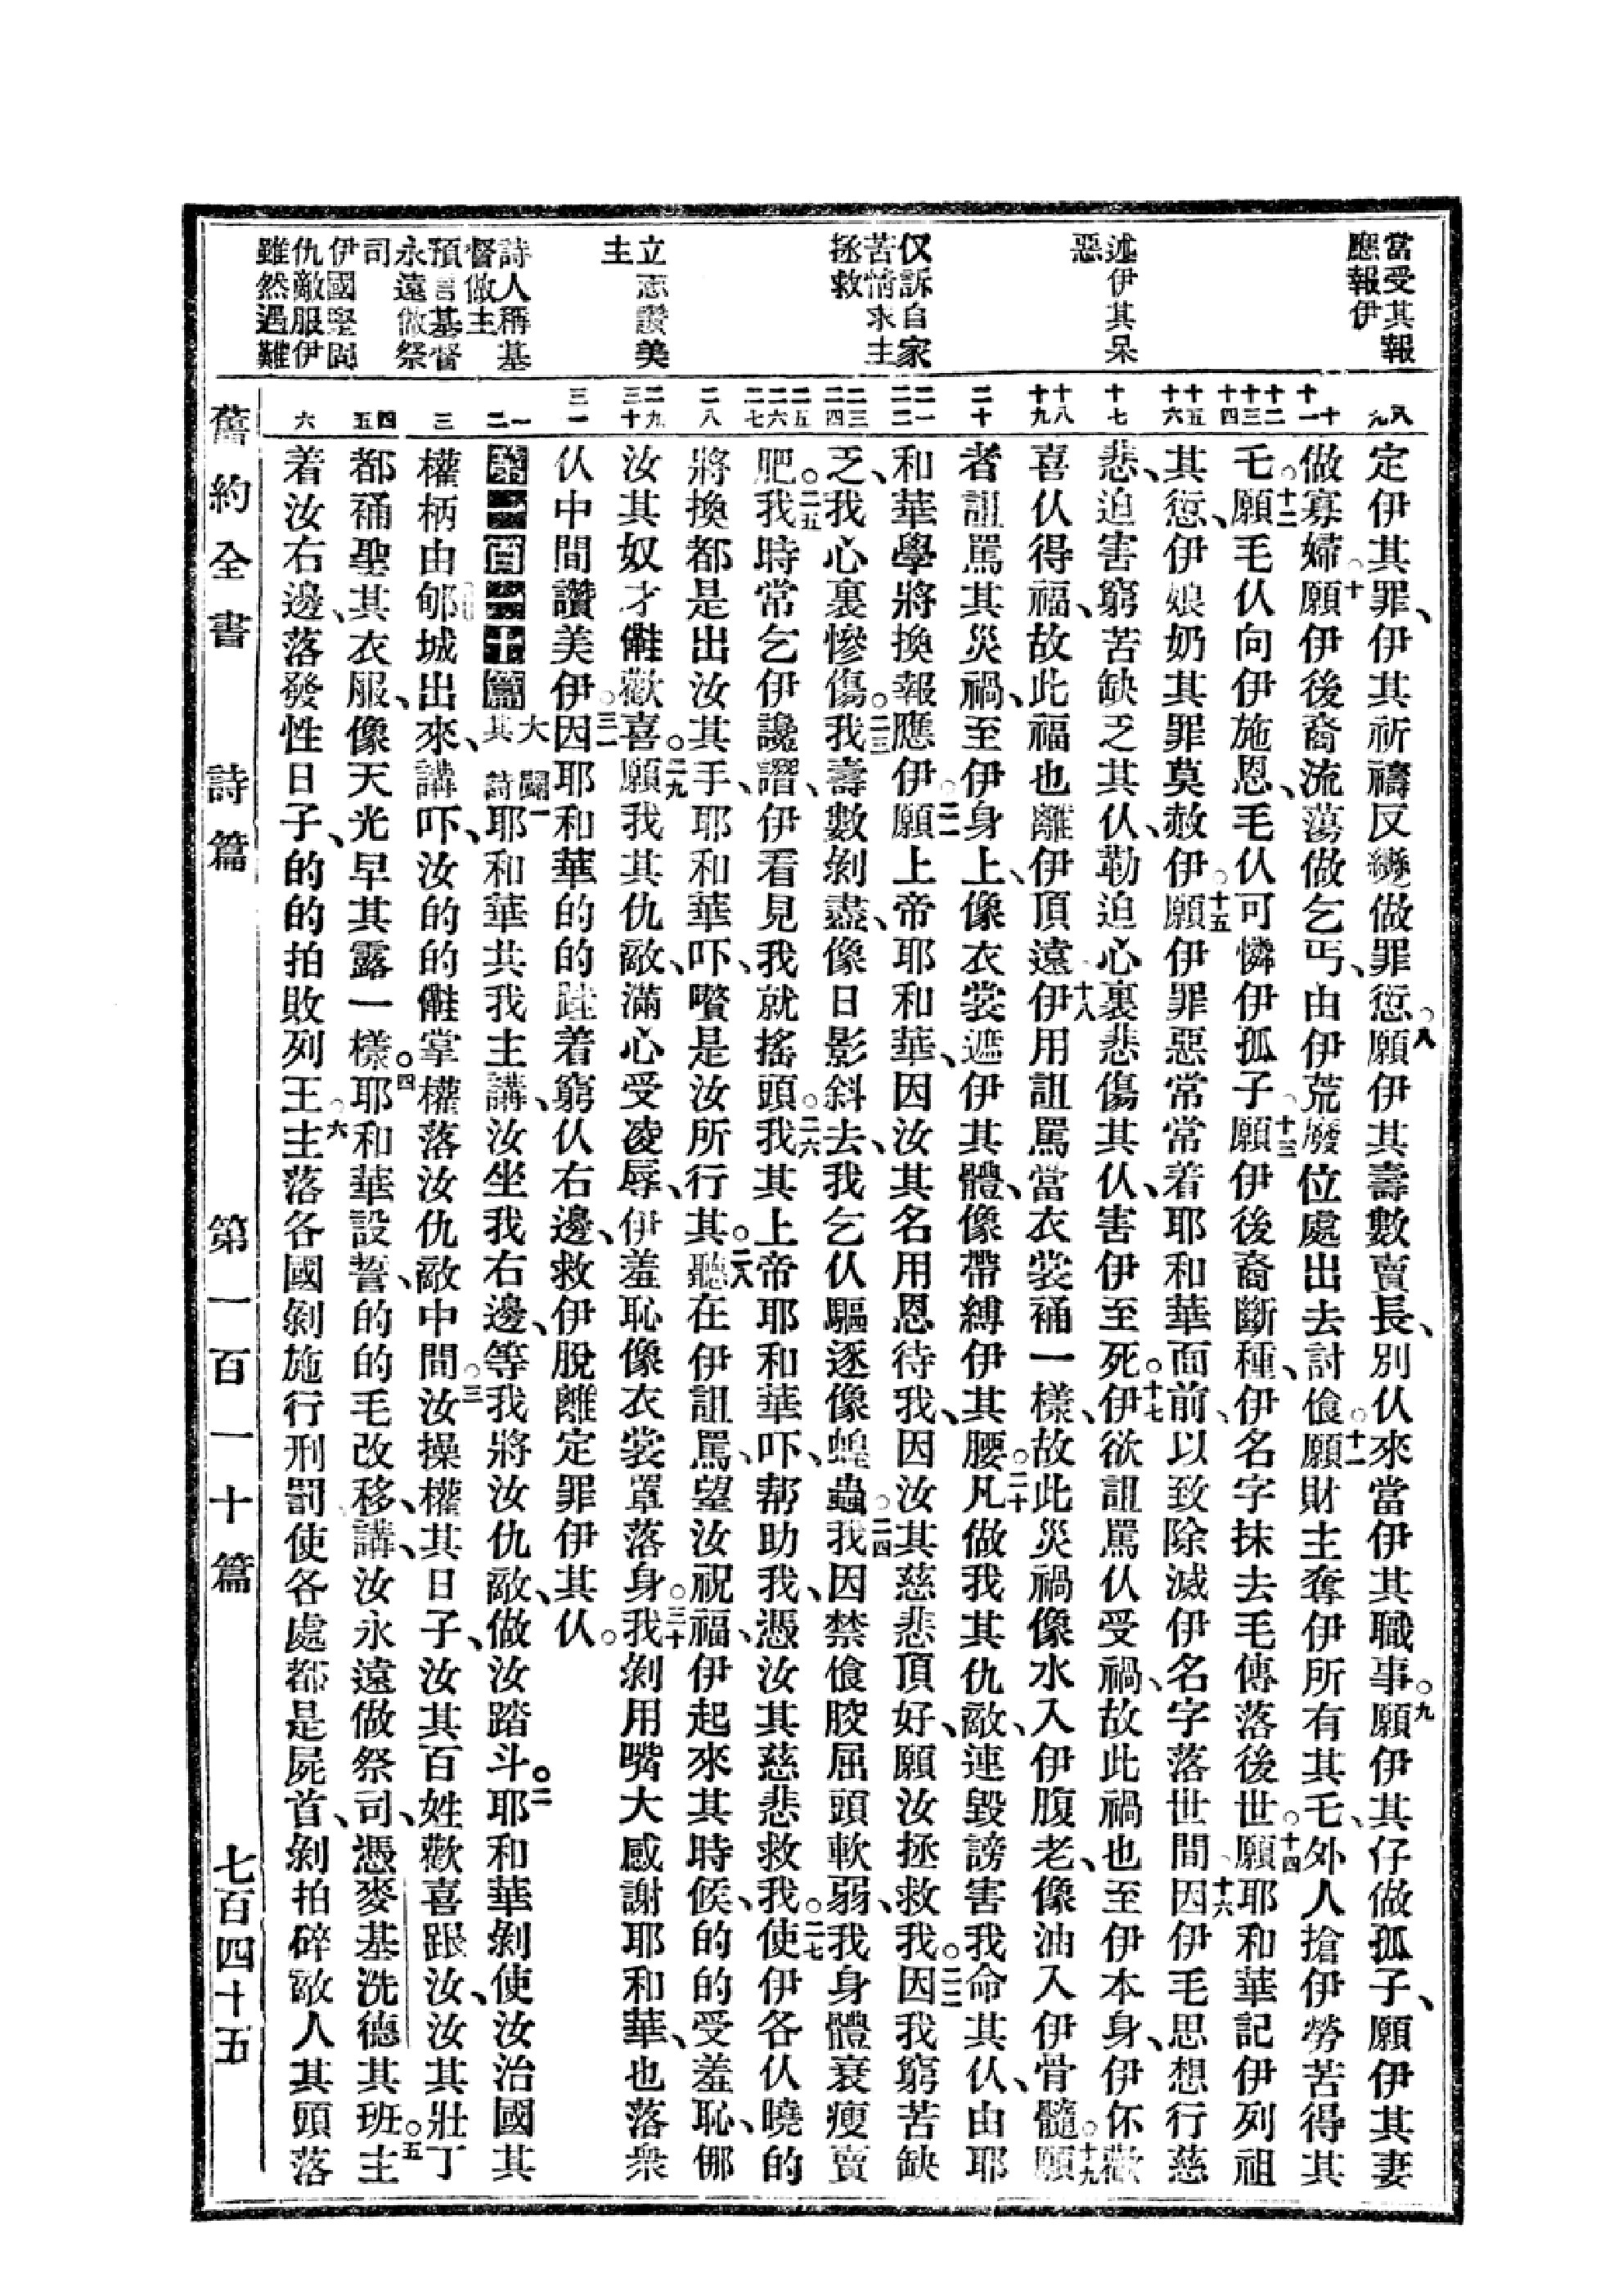 當受其報
應報伊
述伊其呆
惡
仅訴自家
苦情求主
拯救
立志讚美
主
詩人稱基
督做主
預言基督
永遠做祭
司
伊國堅固
仇敵服伊
雖然遇難
八
九
十
十一
十二
十三
十四
十五
十六
十七
十八
十九
二十
二一
二二
二三
二四
二五
二六
二七
二八
二九
三十
三一
一
二
三
四
五
六
定伊其罪、伊其祈禱反變做罪愆。八願伊其壽數賣長、別仈來當伊其職事。九願伊其仔做孤子、願伊其妻
做寡婦。十願伊後裔流蕩做乞丐、由伊荒廢位處出去討飡。十一願財主奪伊所有其乇、外人搶伊勞苦得其
乇。十二願毛仈向伊施恩、毛仈可憐伊孤子。十三願伊後裔斷種、伊名字抹去毛傳落後世。十四願耶和華記伊列祖
其愆、伊娘奶其罪莫赦伊。十五願伊罪惡常常着耶和華面前、以致除滅伊名字落世間。十六因伊毛思想行慈
悲、迫害窮苦缺乏其仈、勒迫心裏悲傷其仈、害伊至死。十七伊欲詛罵仈受禍、故此禍也至伊本身、伊伓歡
喜仈得福、故此福也離伊頂遠。十八伊用詛罵當衣裳裲一樣、故此災禍像水入伊腹老、像油入伊骨髓。十九願
者詛罵其災禍、至伊身上、像衣裳遮伊其體、像帶縛伊其腰。二十凡做我其仇敵、連毀謗害我命其仈、由耶
和華學將換報應伊。二一願上帝耶和華、因汝其名用恩待我、因汝其慈悲頂好、願汝拯救我。二二因我窮苦缺
乏、我心裏慘傷。二三我壽數剝盡、像日影斜去、我乞仈驅逐像蝗蟲。二四我因禁飡骹屈頭軟弱、我身體衰瘦賣
肥。二五我時常乞伊讒譖、伊看見我就搖頭。二六我其上帝耶和華吓、幇助我、憑汝其慈悲救我。二七使伊各仈曉的
將換都是出汝其手、耶和華吓、嚽是汝所行其。二八聽在伊詛罵、望汝祝福、伊起來其時候、的的受羞恥、㑚
汝其奴才㒰歡喜。二九願我其仇敵、滿心受凌辱、伊羞恥像衣裳罩落身。三十我剝用嘴大感謝耶和華、也落衆
仈中間讚美伊。三一因耶和華的的跮着窮仈右邊、救伊脫離定罪伊其仈。
第一百一十篇 大闢其詩 一耶和華共我主講、汝坐我右邊、等我將汝仇敵、做汝踏斗。二耶和華剝使汝治國其
權柄由郇城出來、講吓、汝的的㒰掌權落汝仇敵中間。三汝操權其日子、汝其百姓歡喜跟汝、汝其壯丁
都裲聖其衣服、像天光早其露一樣。四耶和華設誓、的的毛改移、講、汝永遠做祭司、憑麥基洗德其班。五主
着汝右邊、落發性日子、的的拍敗列王。六主落各國剝施行刑罰使各處都是屍首、剝拍碎敵人其頭落
舊約全書 詩篇 第一百一十篇 七百四十五